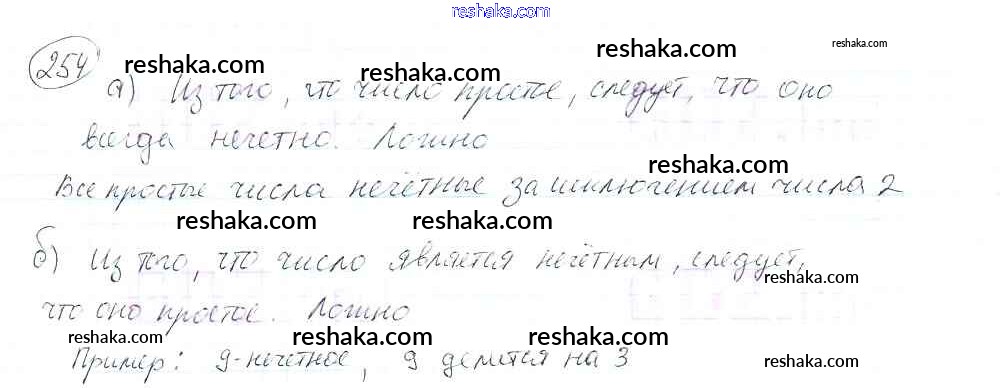 reshaka.com
254
reshaka.com reshaka.com reshaka.com reshaka.com
а) Из того, что число простое, следует, что оно
всегда нечетно. Ложно
reshaka.com
Все простые числа нечётные за исключением числа 2
reshaka.com reshaka.com
б) Из того, что число является нечётным, следует,
reshaka.com
что оно простое. Ложно
reshaka.com reshaka.com reshaka.com
Пример: 9-нечетное, 9 делится на 3